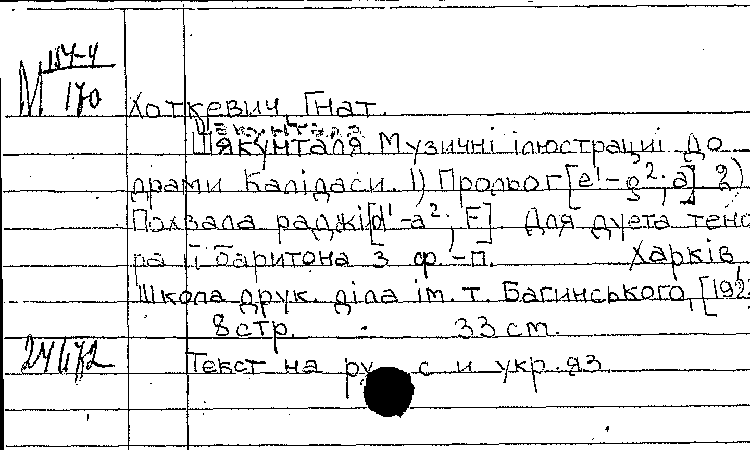 М 154-4
170
Хоткевич, Гнат.
Шякунталя. Музичні ілюстрації до
драми Калідаси. 1) Прольог [e¹-g²; a] 2)
Похвала раджі [d¹-a²; F]. Для дуета тено
ра й баритона з ф.-п. Харків
Школа друк. діла ім. т. Багинського, [192
8 стр. 33 см.
24672
Текст на ру с и укр. яз